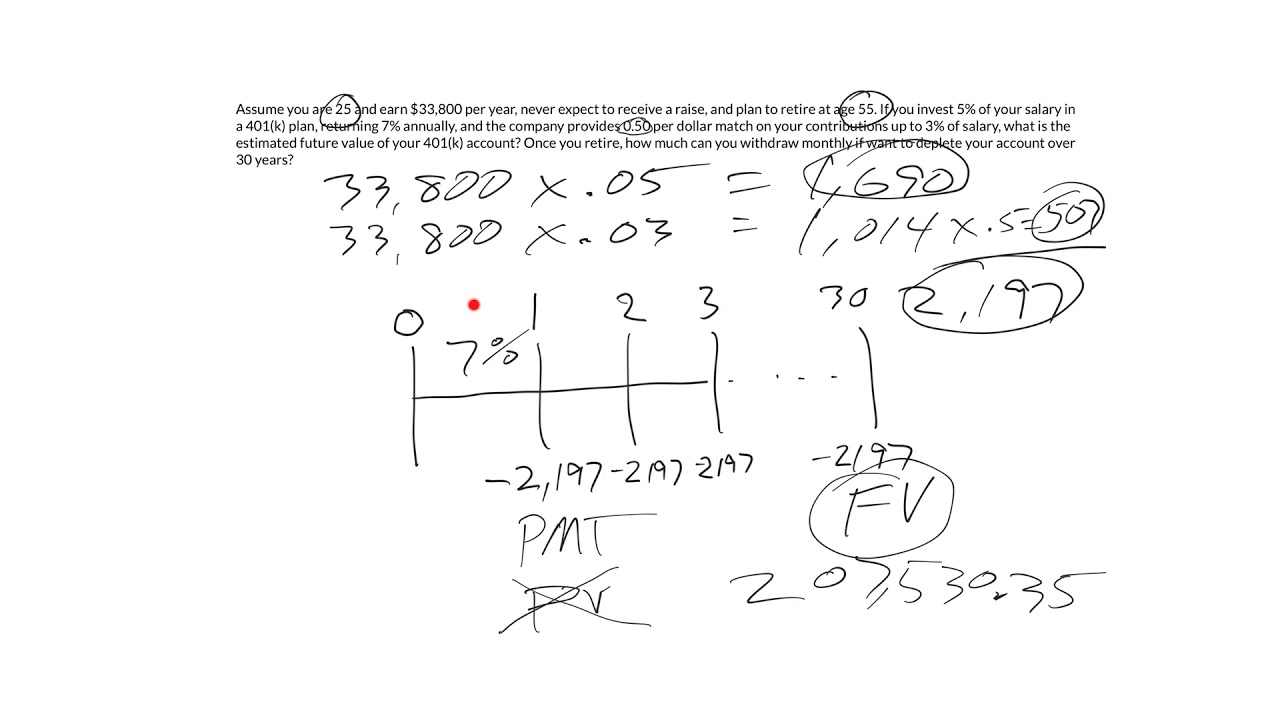 Assume you are 25 and earn $33,800 per year, never expect to receive a raise, and plan to retire at age 55. If you invest 5% of your salary in
a 401(k) plan, returning 7% annually, and the company provides 0.50 per dollar match on your contributions up to 3% of salary, what is the
estimated future value of your 401(k) account? Once you retire, how much can you withdraw monthly if want to deplete your account over
30 years?
33,800 x .05 = 1,690
33,800 x .03 = 1,014 x .5 = 507
2,197
0 1 2 3 30
7%
-2,197 -2197 -2197 -2197
PMT FV
PV 207,530.35